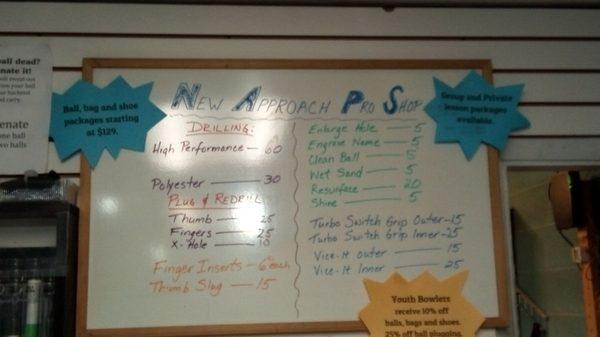 all dead?
nate it!
Ball, bag and shoe
packages starting
at $129.
New Approach Pro Shop
Group and Private
lesson packages
available.
Drilling:
High Performance — 60
Polyester — 30
Plug & Redrill
Thumb — 25
Fingers — 25
X-Hole — 10
Finger Inserts — 6 each
Thumb Slug — 15
Enlarge Hole — 5
Engrave Name — 5
Clean Ball — 5
Wet Sand — 5
Resurface — 20
Shine — 5
Turbo Switch Grip Outer - 15
Turbo Switch Grip Inner - 25
Vice-It outer — 15
Vice-It Inner — 25
Youth Bowlers
receive 10% off
balls, bags and shoes.
25% off ball plugging,
enate
ne ball
wo balls